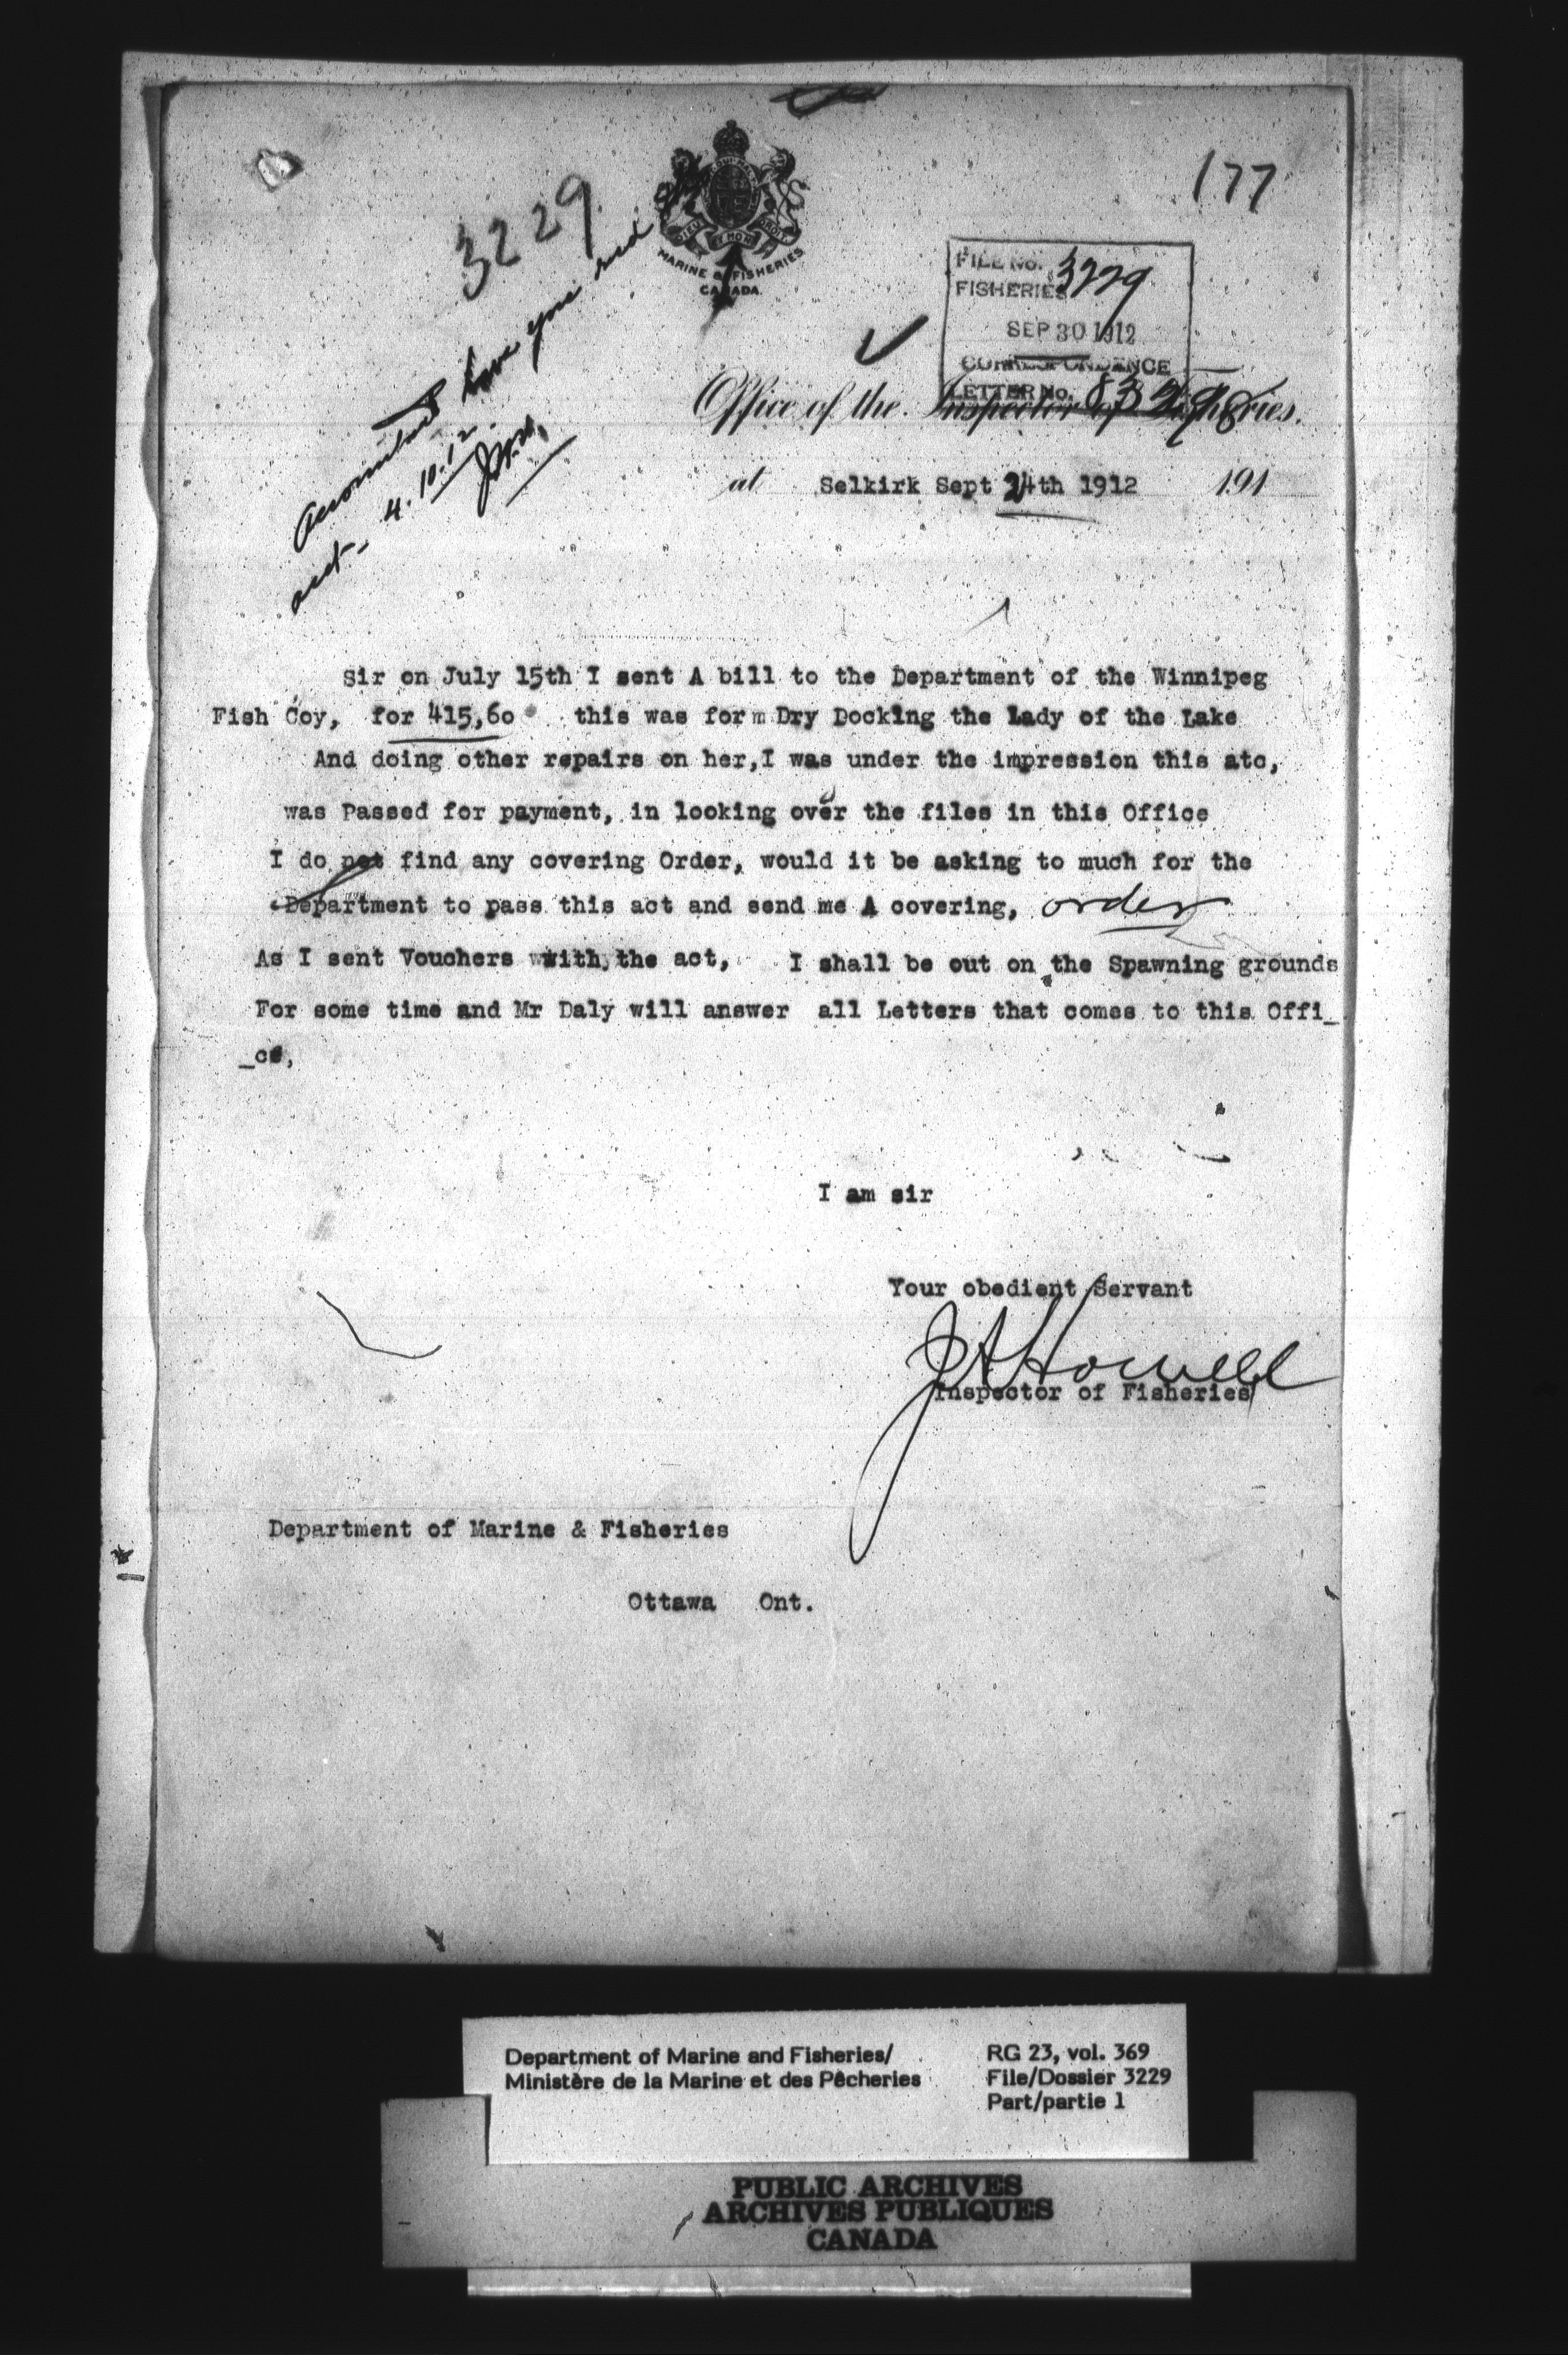 177
3229
MARINE & FISHERIES
CANADA
FILE No. 3229
FISHERIES
SEP 30 1912
CORRESPONDENCE
LETTER No.
have you
acct. 4.10.12.
Office of the Inspector of Fisheries.
at Selkirk Sept 24th 1912 191
Sir on July 15th I sent A bill to the Department of the Winnipeg
Fish Coy, for 415,60 this was for m Dry Docking the Lady of the Lake
And doing other repairs on her,I was under the impression this atc,
was Passed for payment, in looking over the files in this Office
I do not find any covering Order, would it be asking to much for the
Department to pass this act and send me A covering, order
As I sent Vouchers with the act, I shall be out on the Spawning grounds
For some time and Mr Daly will answer all Letters that comes to this Offi_
_ce,
I am sir
Your obedient Servant
J A Howell
Inspector of Fisheries
Department of Marine & Fisheries
Ottawa Ont.
Department of Marine and Fisheries/
Ministère de la Marine et des Pêcheries
RG 23, vol. 369
File/Dossier 3229
Part/partie 1
PUBLIC ARCHIVES
ARCHIVES PUBLIQUES
CANADA